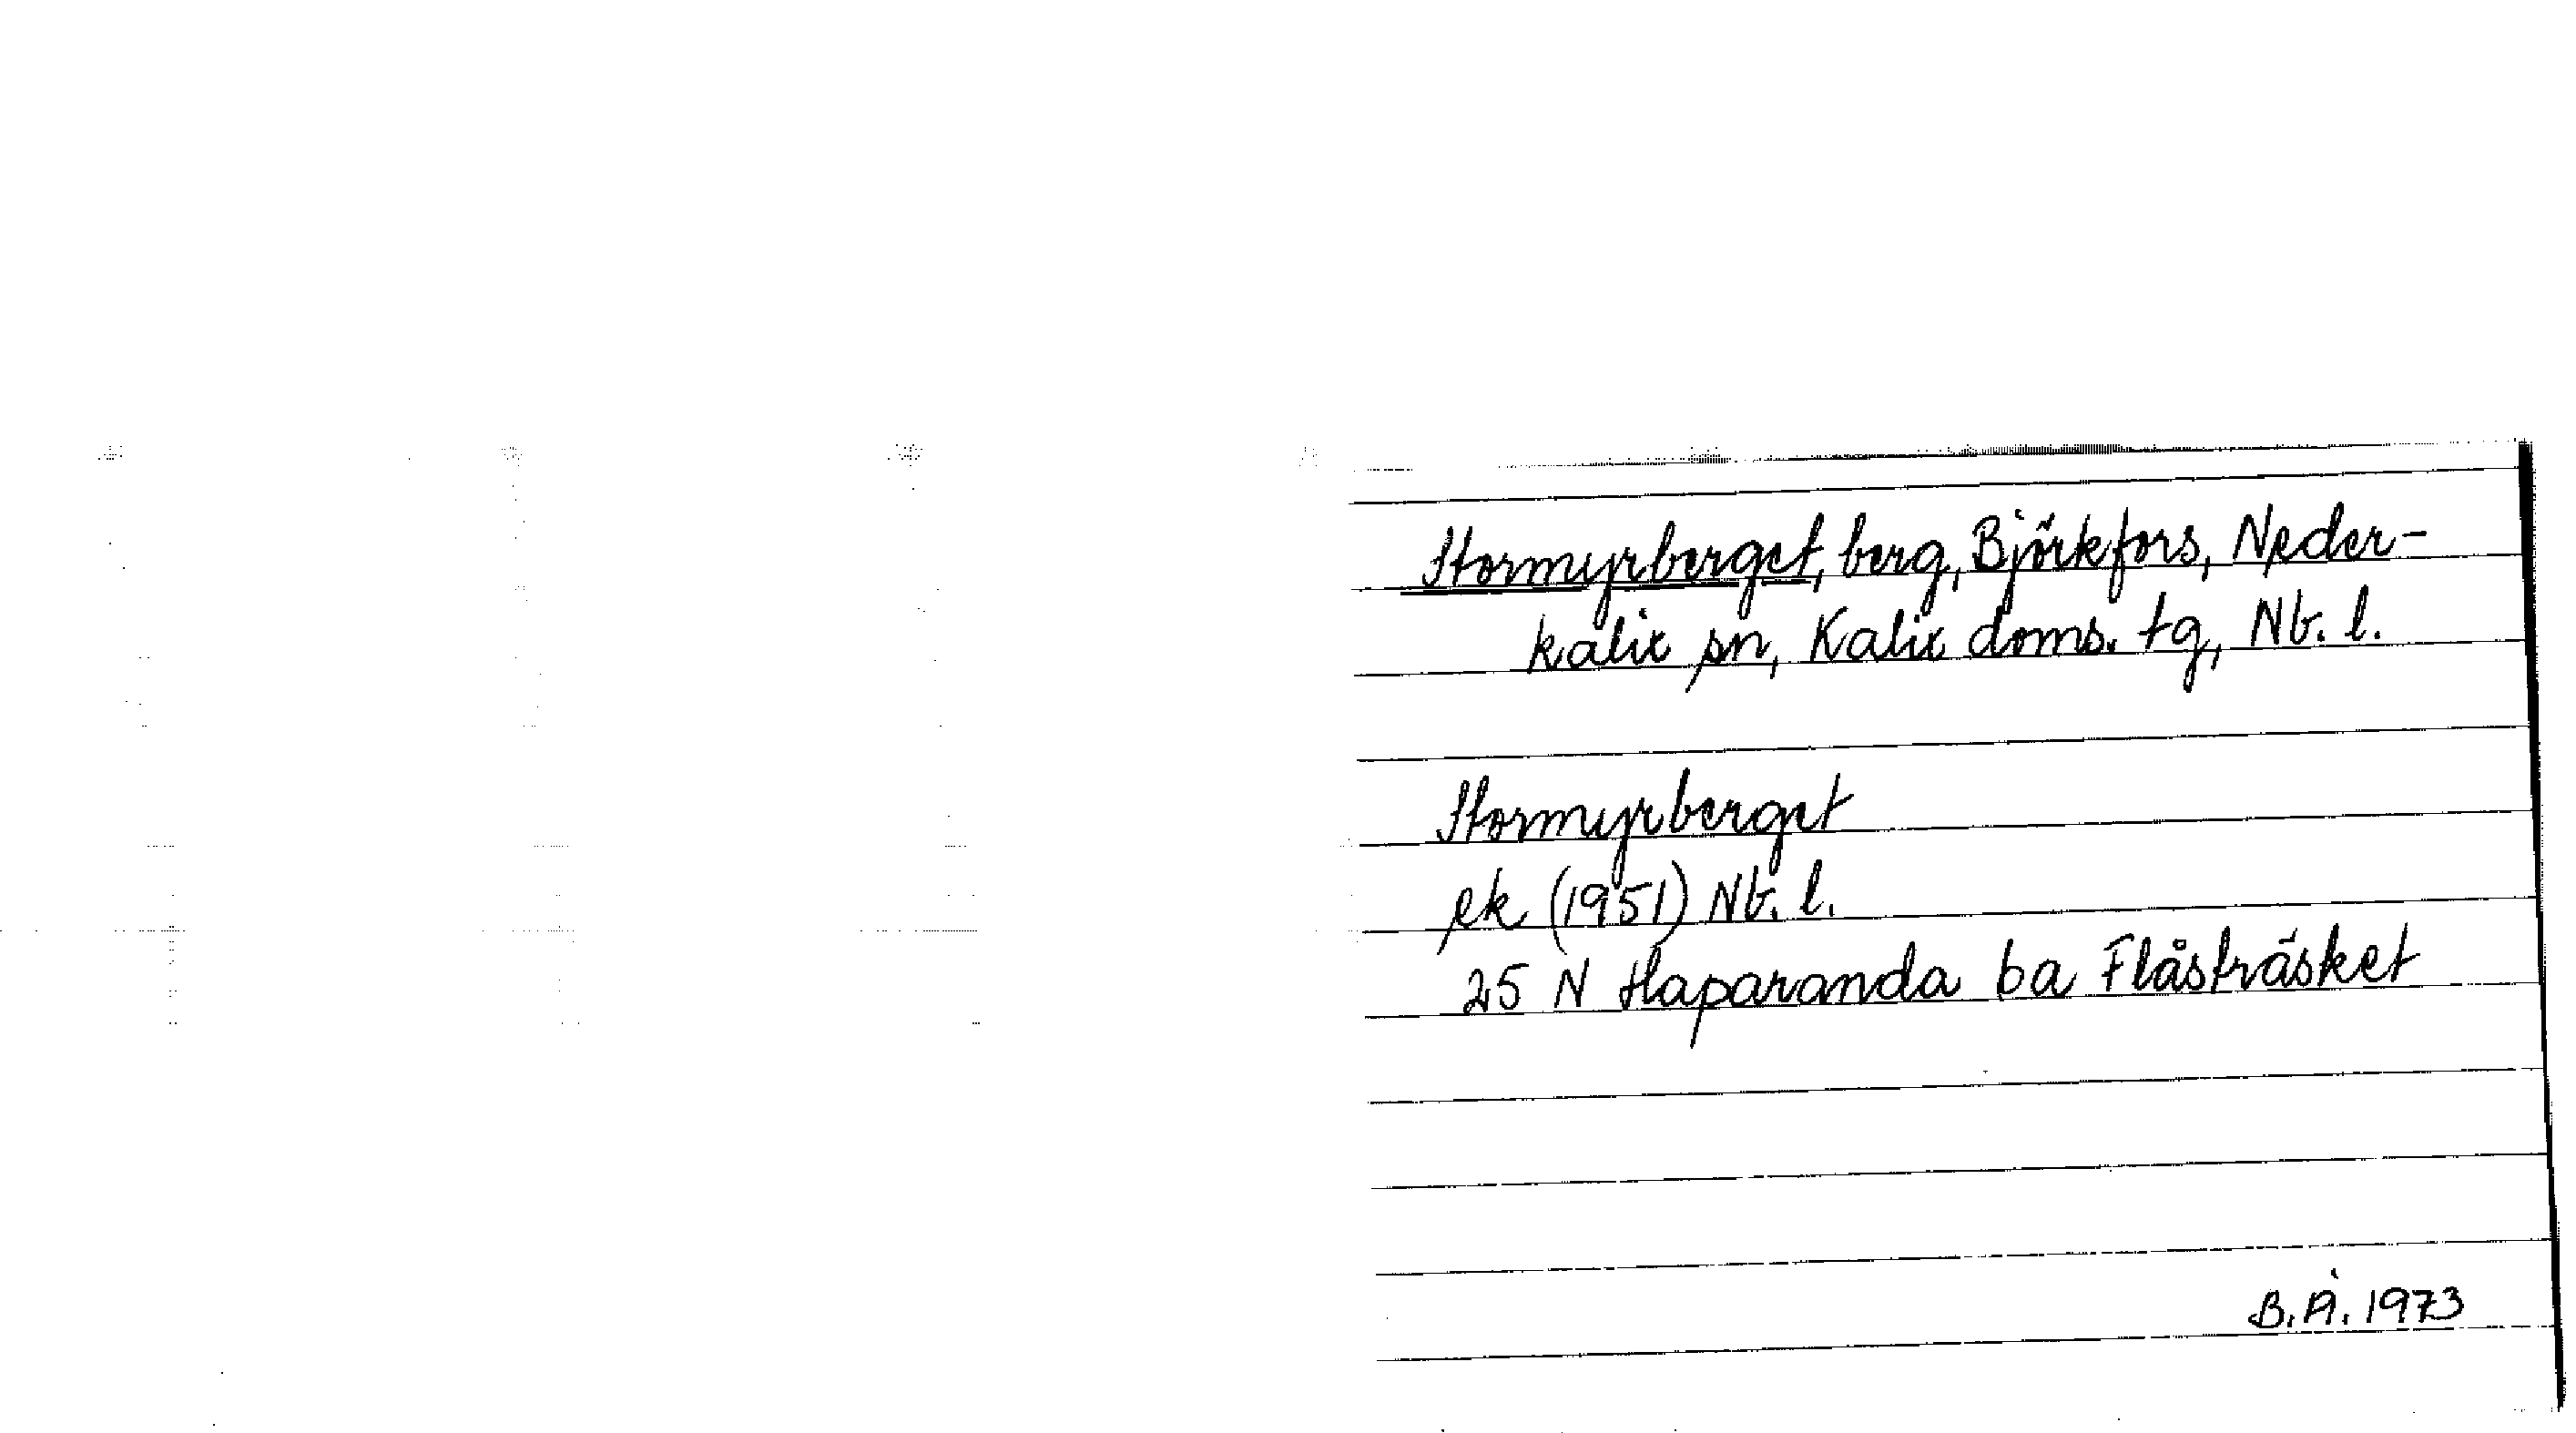 Stormyrberget, berg, Björkfors, Neder-
kalix sn, Kalix doms. tg, Nb. l.
Stormyrberget
ek (1951) Nb. l.
25 N Haparanda ba Flåsträsket
B.Å. 1973